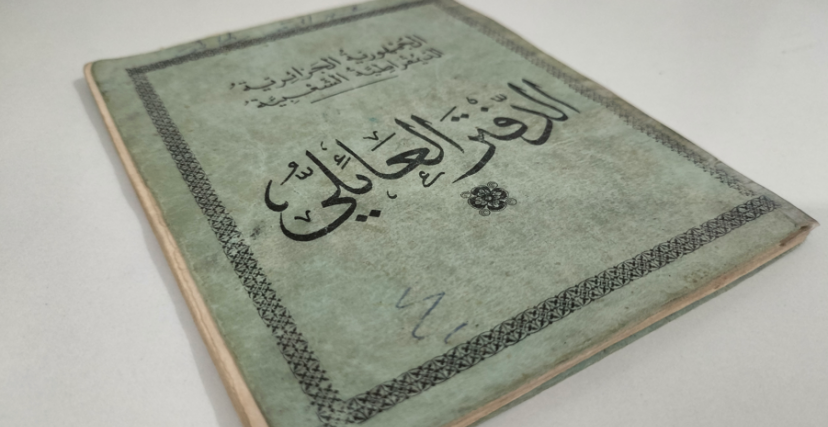 الجمهورية الجزائرية
الديمقراطية الشعبية
الدفتر العائلي